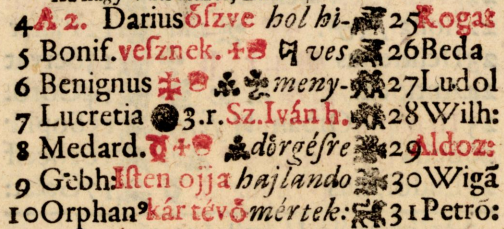 4 A 2. Darius öszve hol hi- 25 Rogaz
5 Bonif. vesznek. ves 26 Beda
6 Benignus meny- 27 Ludol
7 Lucretia 3. r. Sz. Iván h. 28 Wilh:
8 Medard. dörgésre 29 Aldoz:
9 Gebh: Isten ojja hajlando 30 Wigã
10 Orphanꝰ kár tévö mértek: 31 Petrõ: